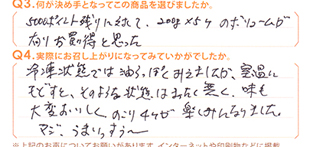 Q3.何が決め手となってこの商品を選びましたか。
500ポイント残りにされて、200g×5ヶのボリュームが
有りお買得と思った
Q4.実際にお召し上がりになってみていかがでしたか。
冷凍状態では油っぽくみえましたが、室温に
もどすと、そのような状態はまったく無く、味も
大変おいしくのこり4ヶが楽しみになりました。
マジ、うまいっすう〜
※上記のお声についてお願いがあります。インターネットや印刷物などに掲載